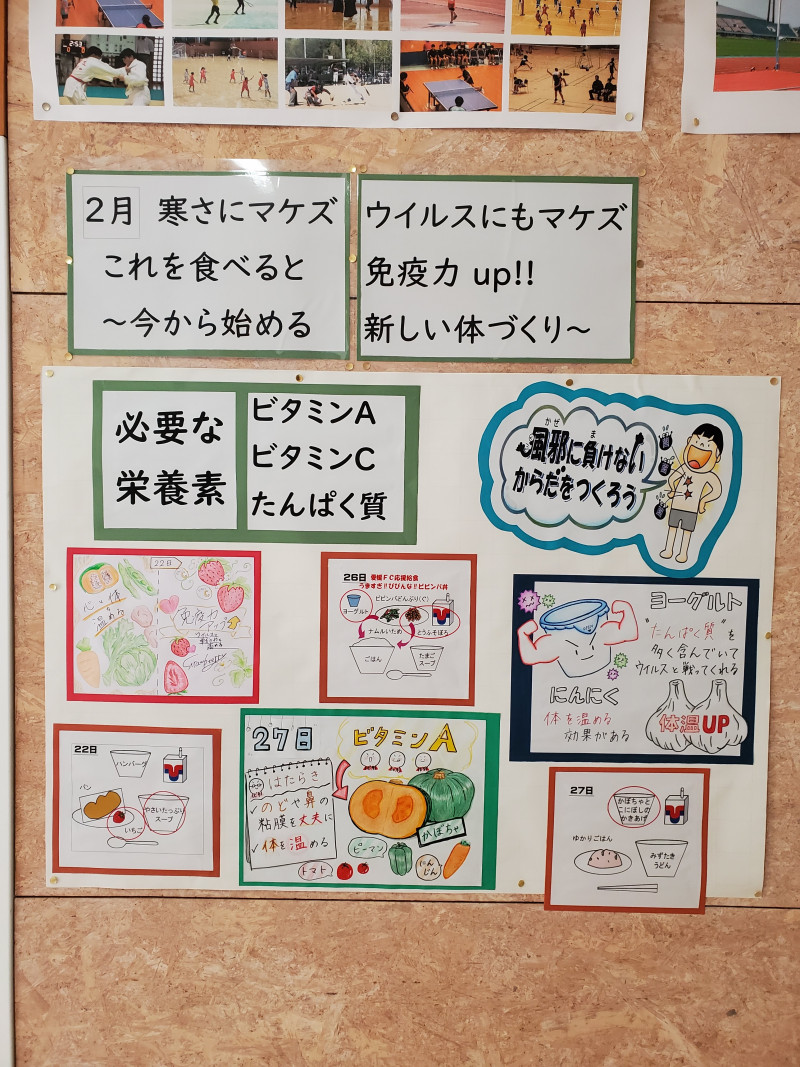 2月 寒さにマケズ
これを食べると
～今から始める
ウイルスにもマケズ
免疫力 up!!
新しい体づくり～
必要な
栄養素
ビタミンA
ビタミンC
たんぱく質
かぜ ま
風邪に負けない
からだをつくろう
22日
心と体
温める
免疫力
アップ
Strawberry
26日 愛媛FC応援給食
うますぎ!!びびんな!!ビビンバ丼
ビビンバどんぶり(ぐ)
ヨーグルト
ナムルいため
とうふそぼろ
ごはん
たまご
スープ
ヨーグルト
"たんぱく質"を
多く含んでいて
ウイルスと戦ってくれる
にんにく
体を温める
効果がある
体温UP
22日
ハンバーグ
パン
やさいたっぷり
スープ
いちご
27日
ビタミンA
はたらき
✓のどや鼻の
粘膜を丈夫に
✓体を温める
かぼちゃ
ピーマン
トマト
にんじん
27日
かぼちゃと
こにぼしの
かきあげ
ゆかりごはん
みずたき
うどん